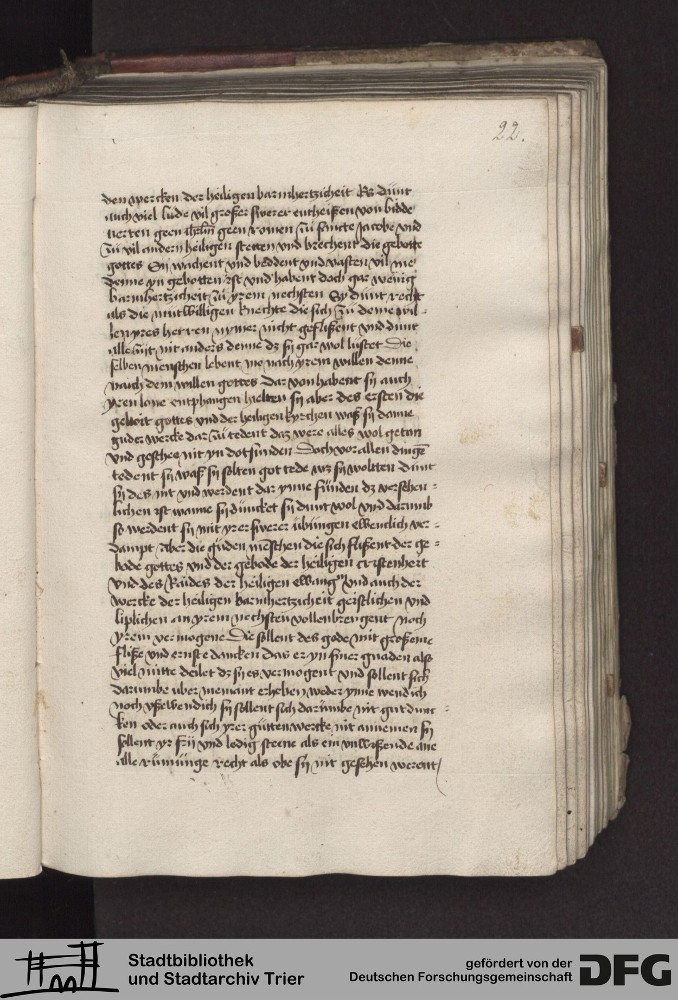 22.
den wercken der heiligen barmhertzicheit Es dùnt
auch viel lude vil großer swerer entheißen von bidde
geen romen zù sancte Jacobe vnd
zù vil andern heiligen stetten vnd brechent die gebotte
gottes Sij wachent vnd beddent vnd vasten vil me
denne yn gebotten ist vnd habent doch gar wenig
barmhertzicheit zù yrem nechsten Sy dùnt recht
als die mutwilligen knechte die sich zù deme wil -
len yres herren nymer nicht geflißent vnd dunt
alle zijt nit anders denne dz sij gar wol lustet Die
selben menschen lebent me nach yrem willen denne
nach dem willen gottes Dar von habent sij auch
yren lone entphangen hielten sij aber des ersten die
geboit gottes vnd der heiligen kyrchen waß sij danne
guder wercke dar zù tedent daz were alles wol getan
vnd geschee nit yn dotsunden Doch vor allen dingē
tedent sij waß sij solten got tede wz sij woltten dùnt
sij des nit vnd werdent dar ynne funden dz versehen -
lichen ist wanne sij duncket sij dunt wol vnd darumb
so werdent sij mit yrer swerer ùbùngen ellenclich ver -
dampt Aber die gùden menschen die sich flißent der ge -
bode gottes vnd der gebode der heiligen cristenheit
vnd des Raides der heiligen vnd auch der
wercke der heiligen barmhertzicheit geistlichen vnd
liplichen an yrem nechsten vollenbrengent noch
yrem vermogene Die sollent des gode mit großeme
fliße vnd ernste dancken das er yn siner gnaden also
viel mitte deilet dz sij es vermogent vnd sollent sich
darumbe uber niemant erheben weder ynne wendich
noch vßwendich sij sollent sich darumbe nit gut dunc -
ken oder auch sich yrer gùtten wercke nit annemen sij
sollent yr frij vnd ledig steene als ein vnwißende ane
alle rùmùnge recht als obe sij nit geschen werent
Stadtbibliothek
und Stadtarchiv Trier
gefördert von der
Deutschen Forschungsgemeinschaft
DFG